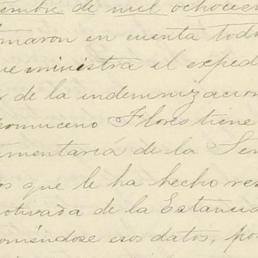 iembre de mil ochocie
maron en cuenta todo
ue ministra el exped
de la indemnizacion
omuceno Flores tiene
amentaria de la Se
os que le ha hecho res
otivada de la Estancia
oméndose esos datos, po